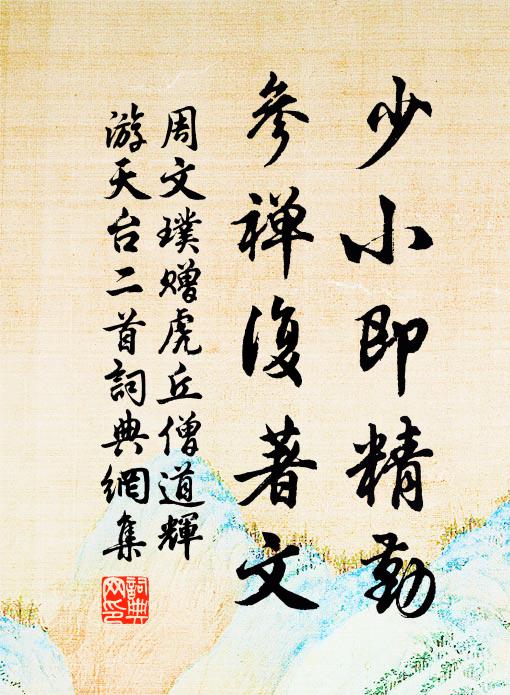 少小即精勤
參禅復著文
周文璞贈虎丘僧道輝
游天台二首詞典網集
詞典网印